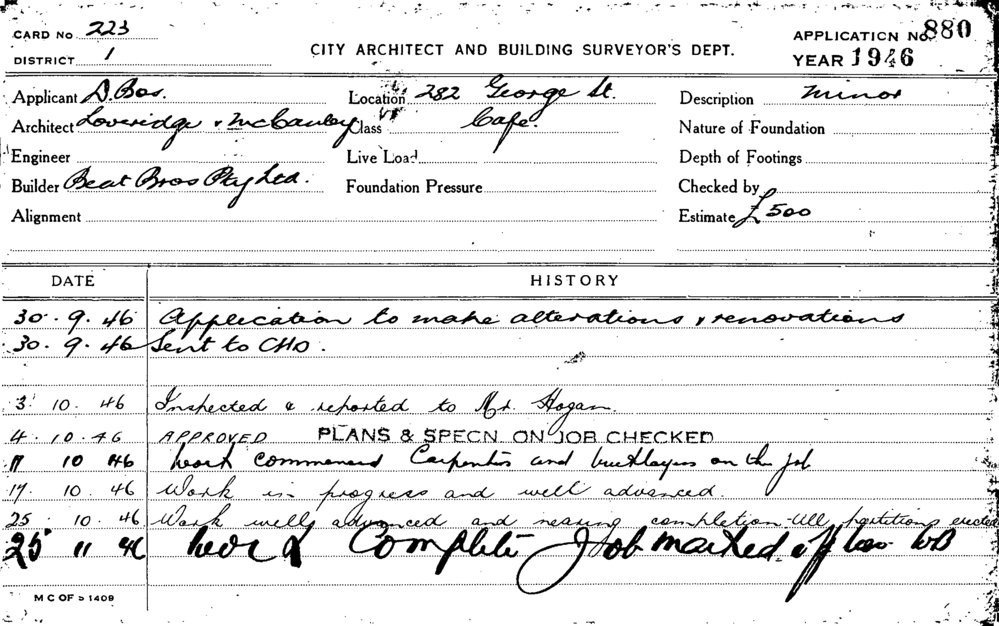 CARD No 223
DISTRICT 1
CITY ARCHITECT AND BUILDING SURVEYOR'S DEPT.
APPLICATION No. 880
YEAR 1946
Applicant D. Bos. Location 282 George St. Description minor
Architect Loveridge & McCauley Class VI Cafe. Nature of Foundation
Engineer Live Load Depth of Footings
Builder Beat Bros Pty Ltd. Foundation Pressure Checked by
Alignment Estimate £500
DATE HISTORY
30 . 9 . 46 Application to make alterations & renovations
30 . 9 . 46 Sent to CHO.
3 10 . 46 Inspected & reported to Mr. Hogan.
4 . 10 . 46 APPROVED PLANS & SPECN. ON JOB CHECKED
11 10 46 Work commenced Carpenters and bricklayers on the job
17 . 10 . 46 Work in progress and well advanced.
25 . 10 . 46 Work well advanced and nearing completion - All partitions erected
25 11 46 Work Complete Job marked off
M C OF S 1409